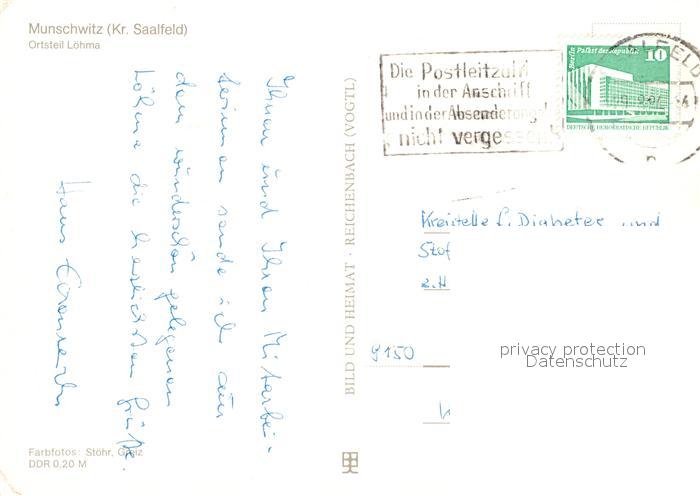 Munschwitz (Kr. Saalfeld)
Ortsteil Löhma
Ihnen und Ihren Mitarbei-
terinnen sende ich aus
dem wunderschön gelegenen
Löhma die herzlichsten Grüße.
Hans
Farbfotos: Stöhr, Greiz
DDR 0,20 M
BILD UND HEIMAT · REICHENBACH (VOGTL)
Die Postleitzahl
in der Anschrift
und in der Absenderang
nicht vergessen
Berlin Palast der Republik
10
DEUTSCHE DEMOKRATISCHE REPUBLIK
ALFELD
Kreisstelle f. Diabetes und
Stof
z. H
9150
privacy protection
Datenschutz